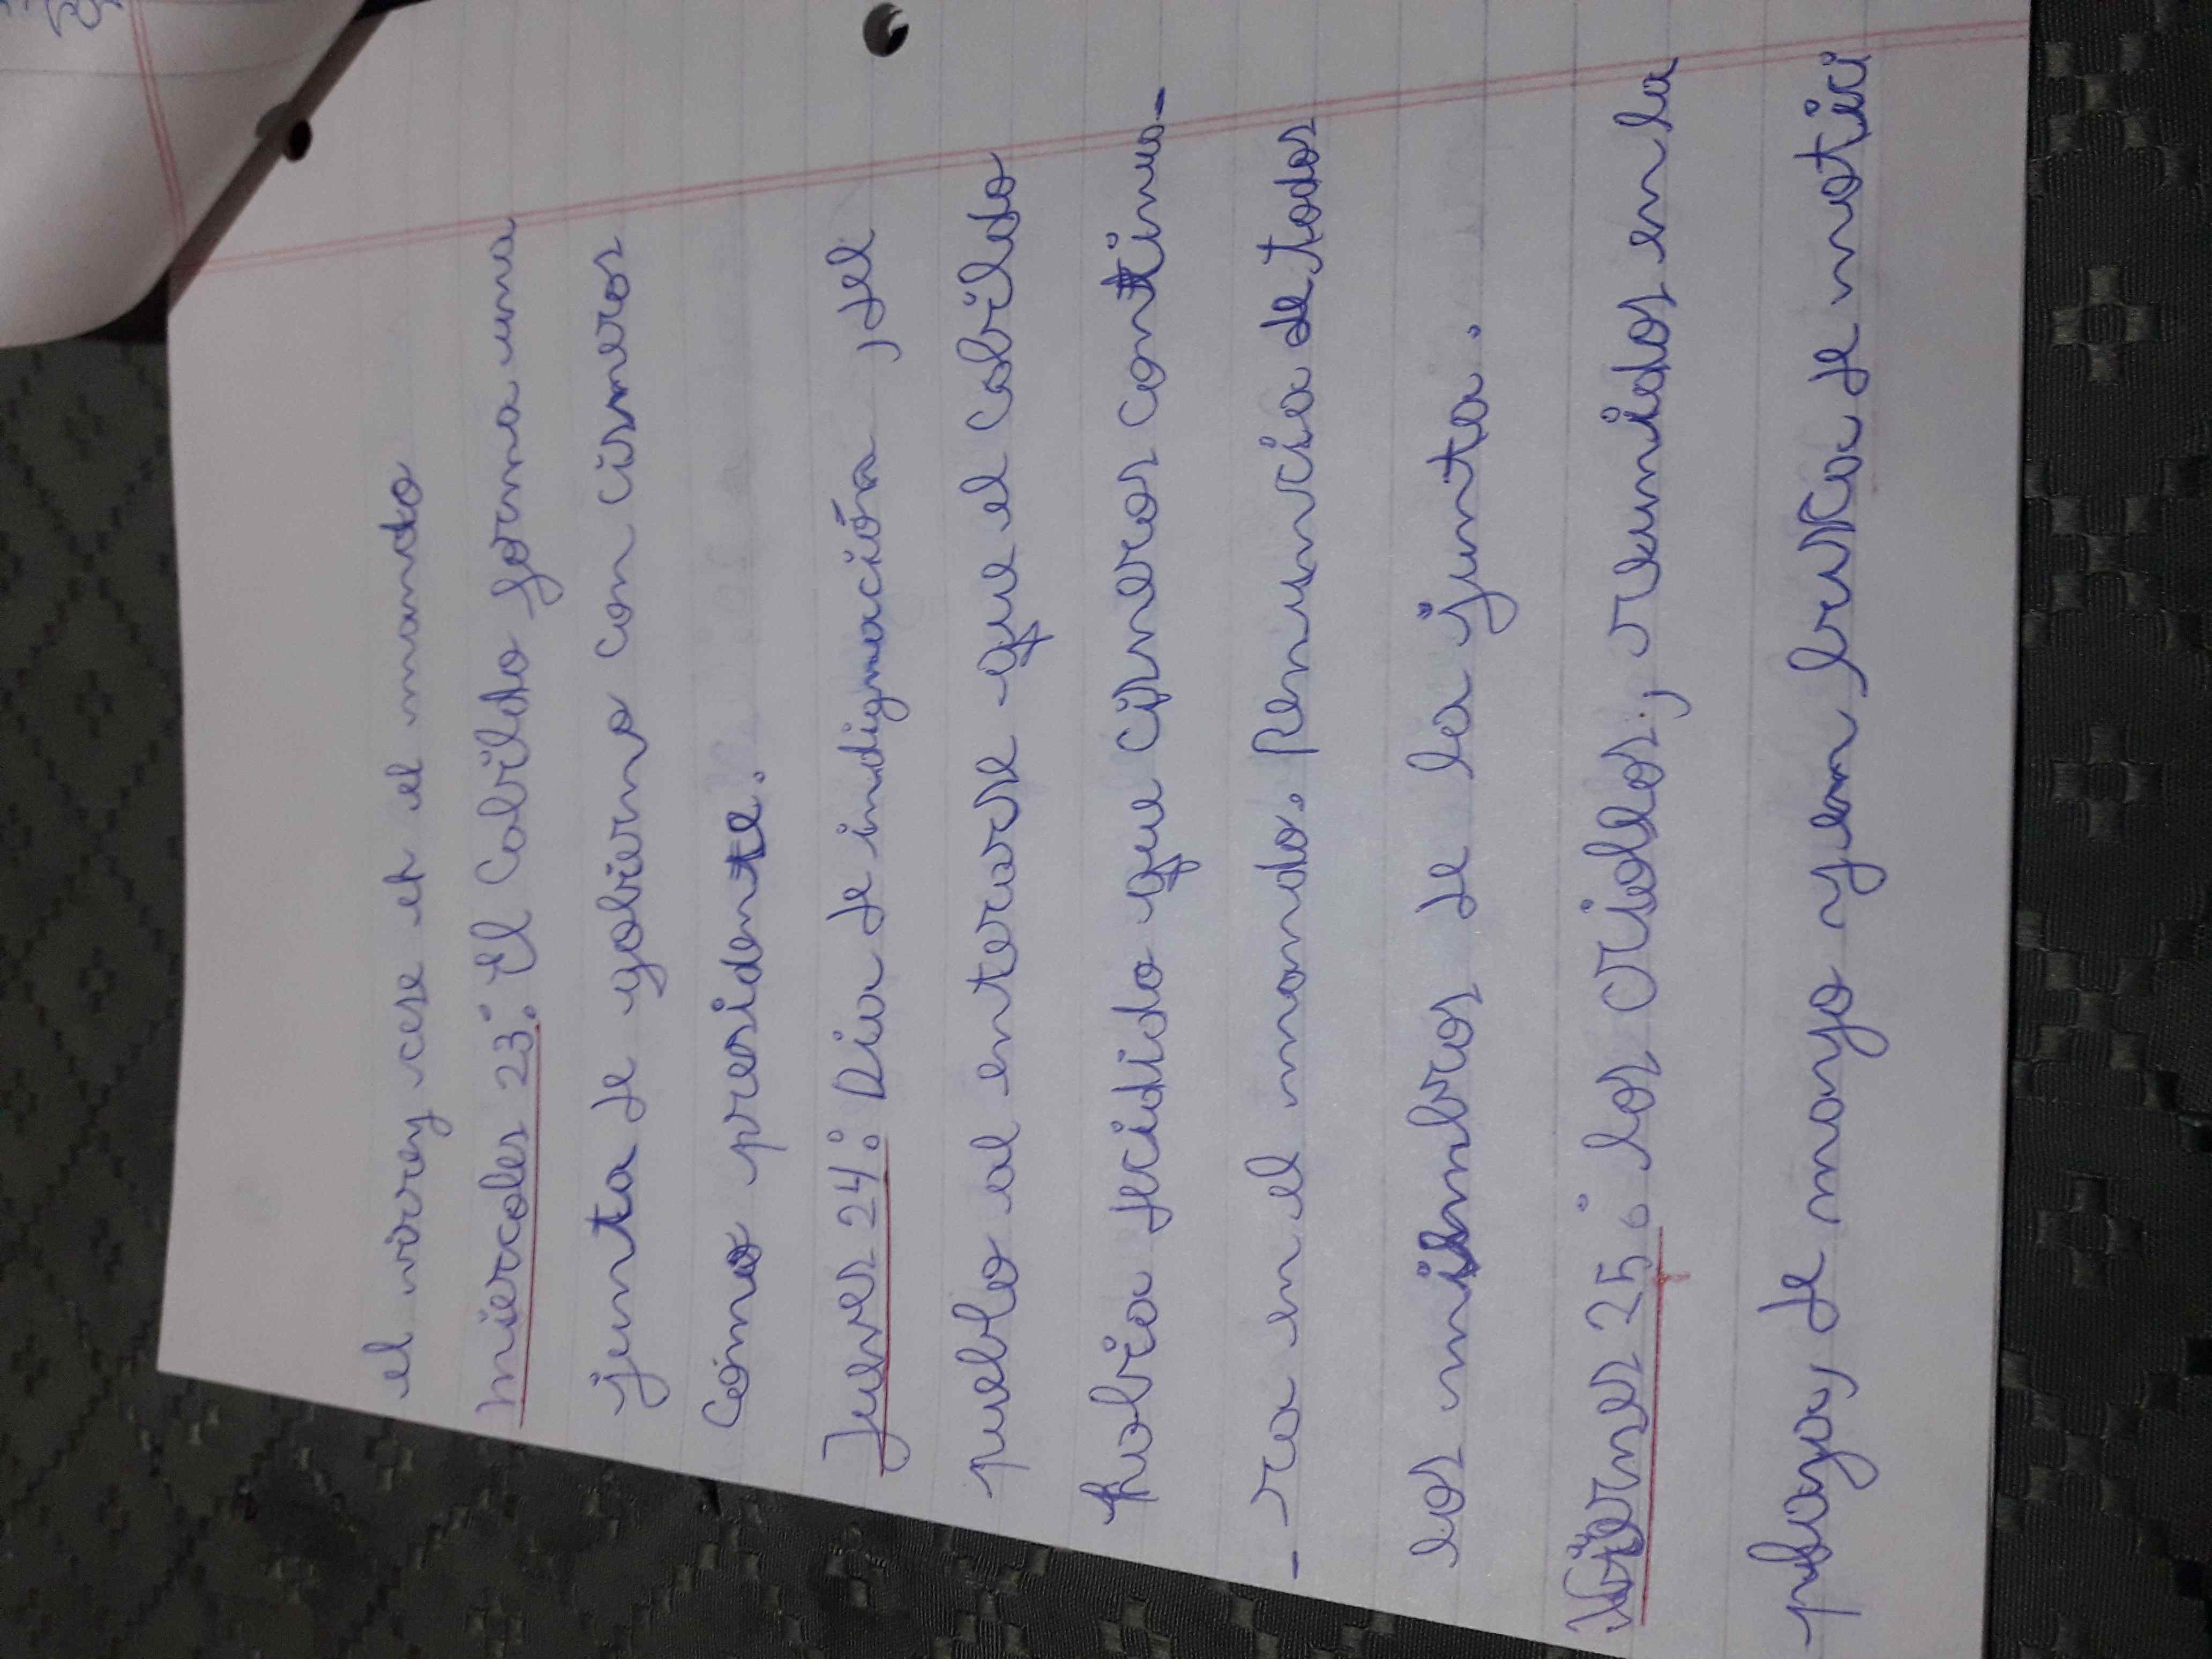 el virrey cese el mando
Miercoles 23: El Cabildo forma una
junta de gobierno con cisneros
Cómo presidente.
Jueves 24: Dia de indignación, del
pueblo al enterarse que el Cabildo
habia decidido que cisneros continua-
- ra en el mando. Renuncia de todos
los miembros de la junta.
Viernes 25: los criollos, reunidos en la
plaza, de mayo y en busca de notici